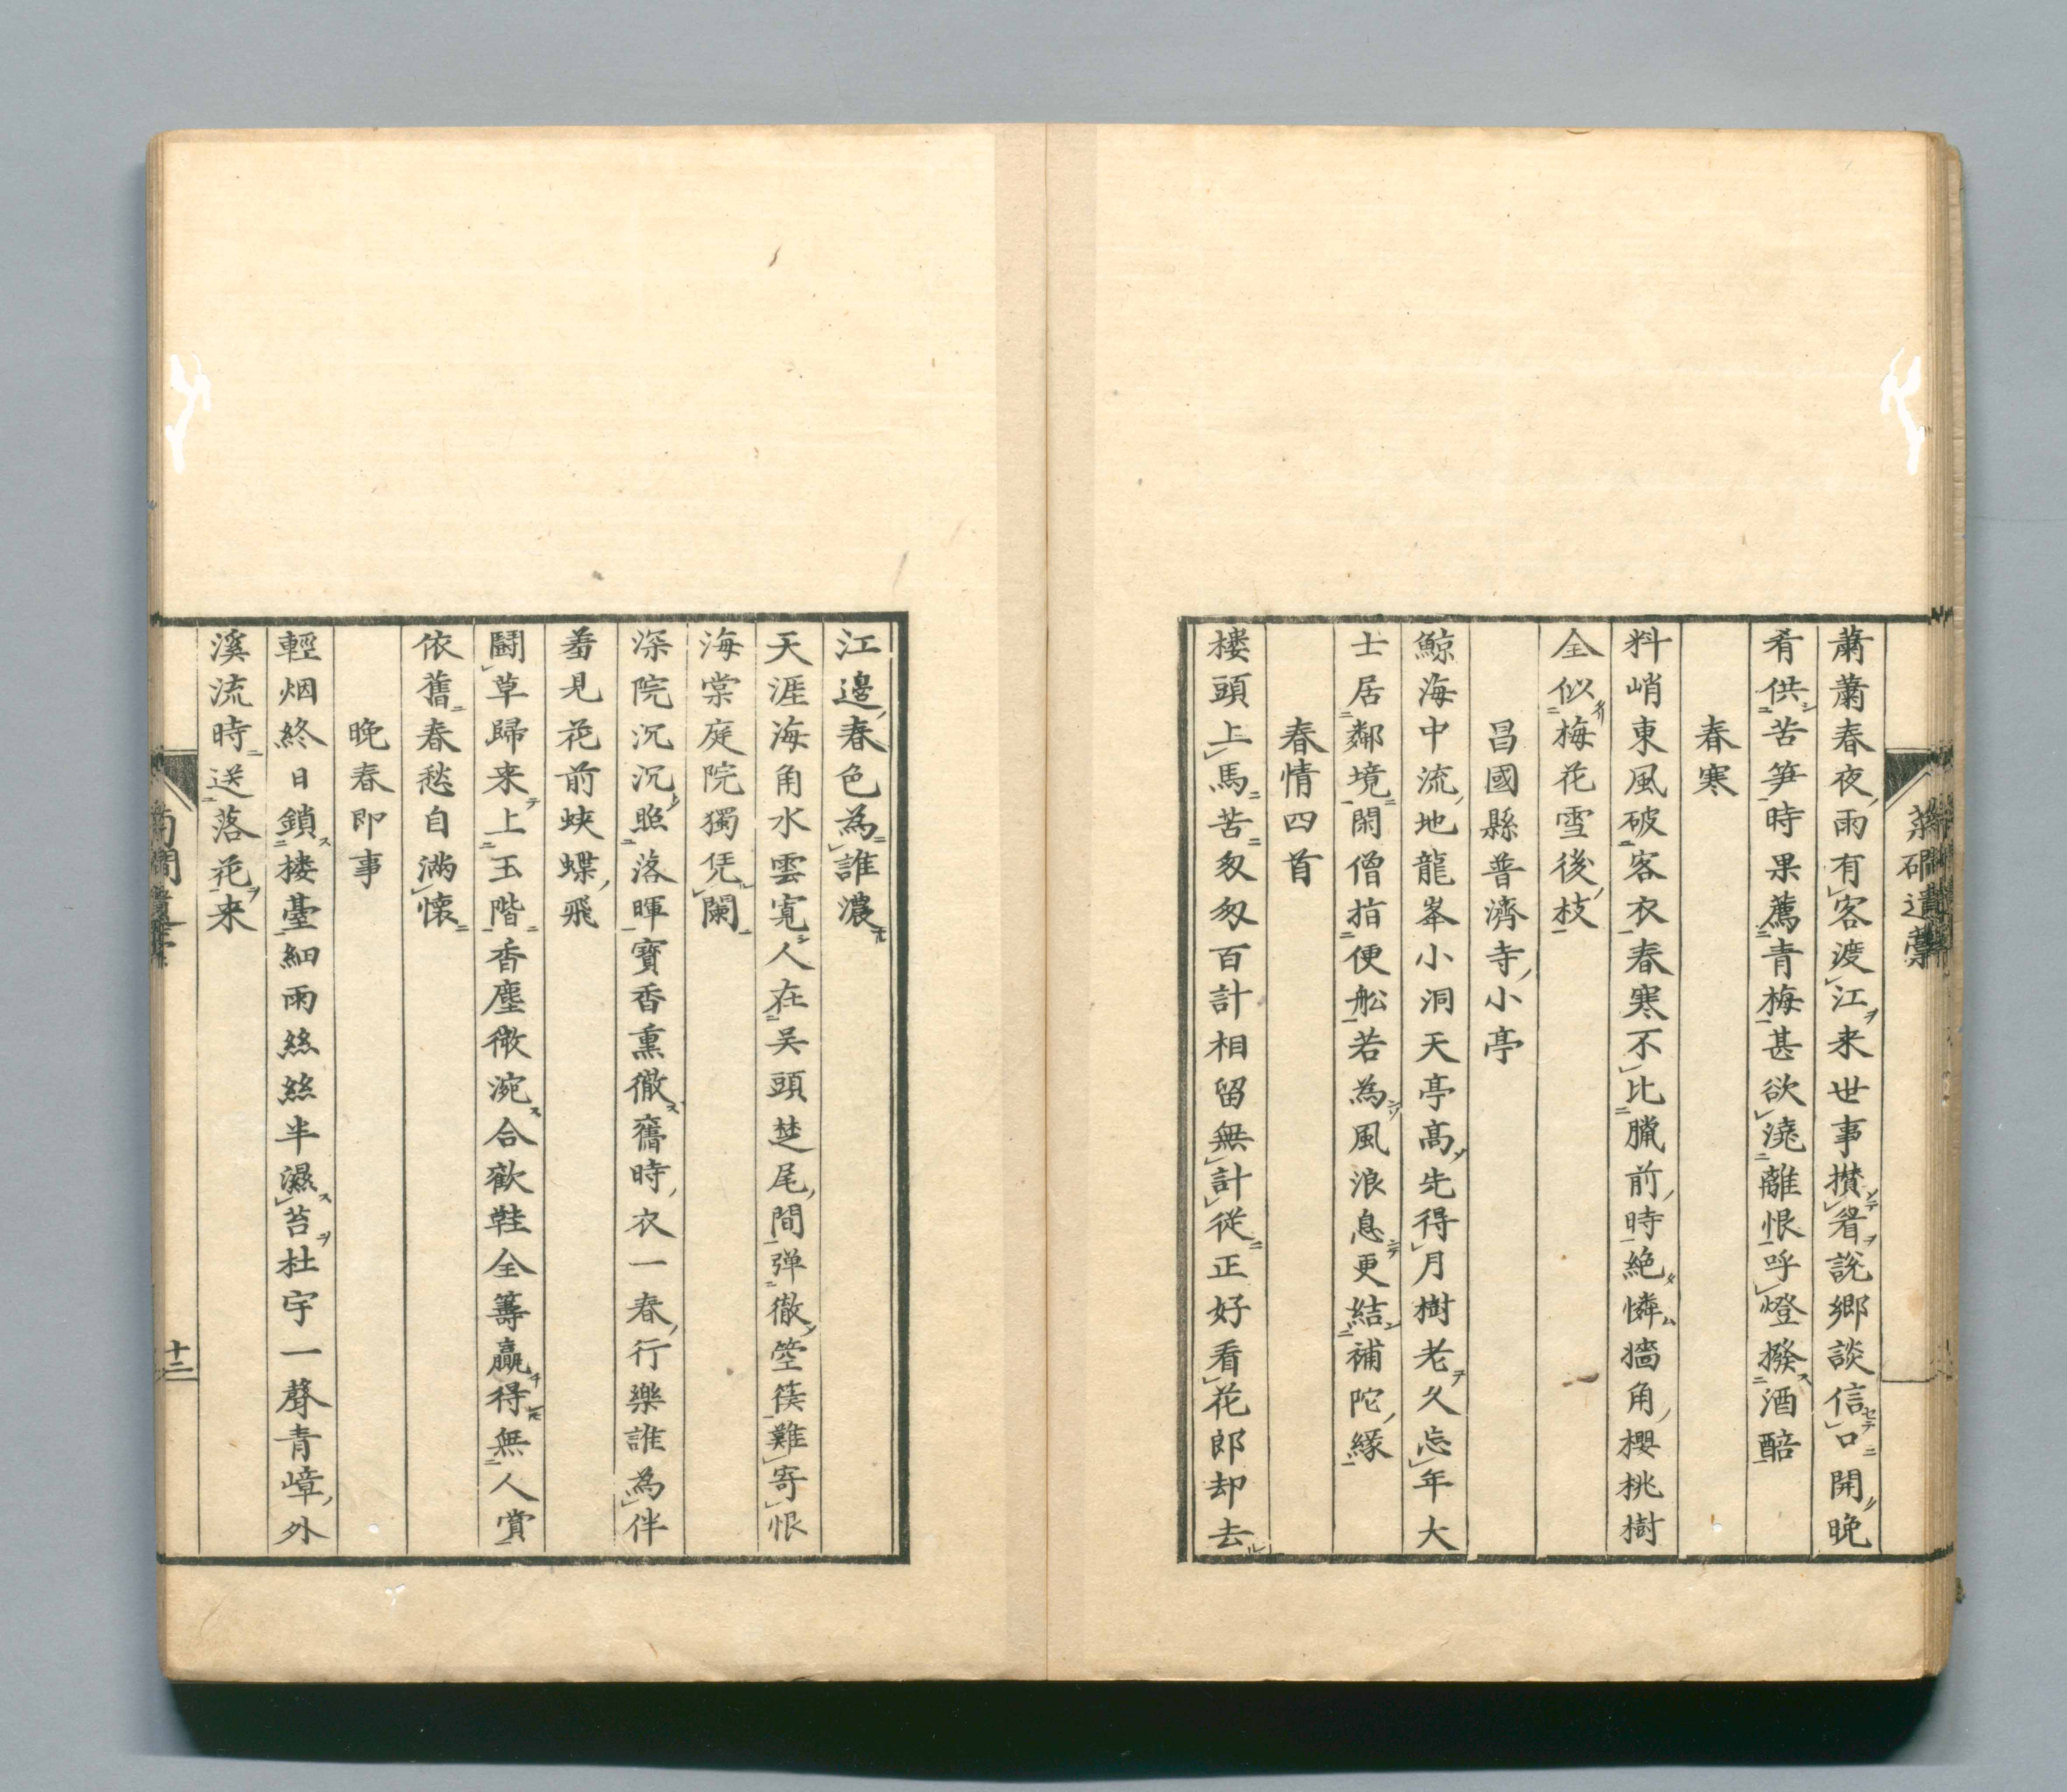 蕭蕭春夜雨有客渡江来世事攢眉說鄉談信口開晚
肴供苦笋時果薦青梅甚欲澆離恨呼燈撥酒醅
春寒
料峭東風破客衣春寒不比臘前時絶憐墻角櫻桃樹
全似梅花雪後枝
昌國縣普濟寺小亭
鯨海中流地龍峯小洞天亭高先得月樹老久忘年大
士居鄰境閑僧指便舩若為風浪息更結補陀緣
春情四首
楼頭上馬苦匆匆百計相留無計從正好看花郎却去
江邊春色為誰濃
天涯海角水雲寬人在吴頭楚尾間弹徹箜篌難寄恨
海棠庭院獨凭闌
深院沉沉照落暉寶香熏徹舊時衣一春行樂誰為伴
羞見花前蛺蝶飛
鬪草歸来上玉階香塵微涴合歡鞋全籌贏得無人賞
依舊春愁自満懐
晚春即事
輕烟終日鎖楼臺細雨絲絲半濕苔杜宇一聲青嶂外
溪流時送落花来
十二